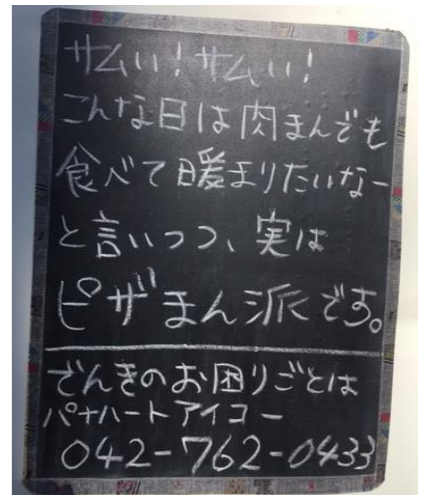 サムい!サムい!
こんな日は肉まんでも
食べて暖まりたいなー
と言いつつ、実は
ピザまん派です。
でんきのお困りごとは
パナハートアイコー
042-762-0433